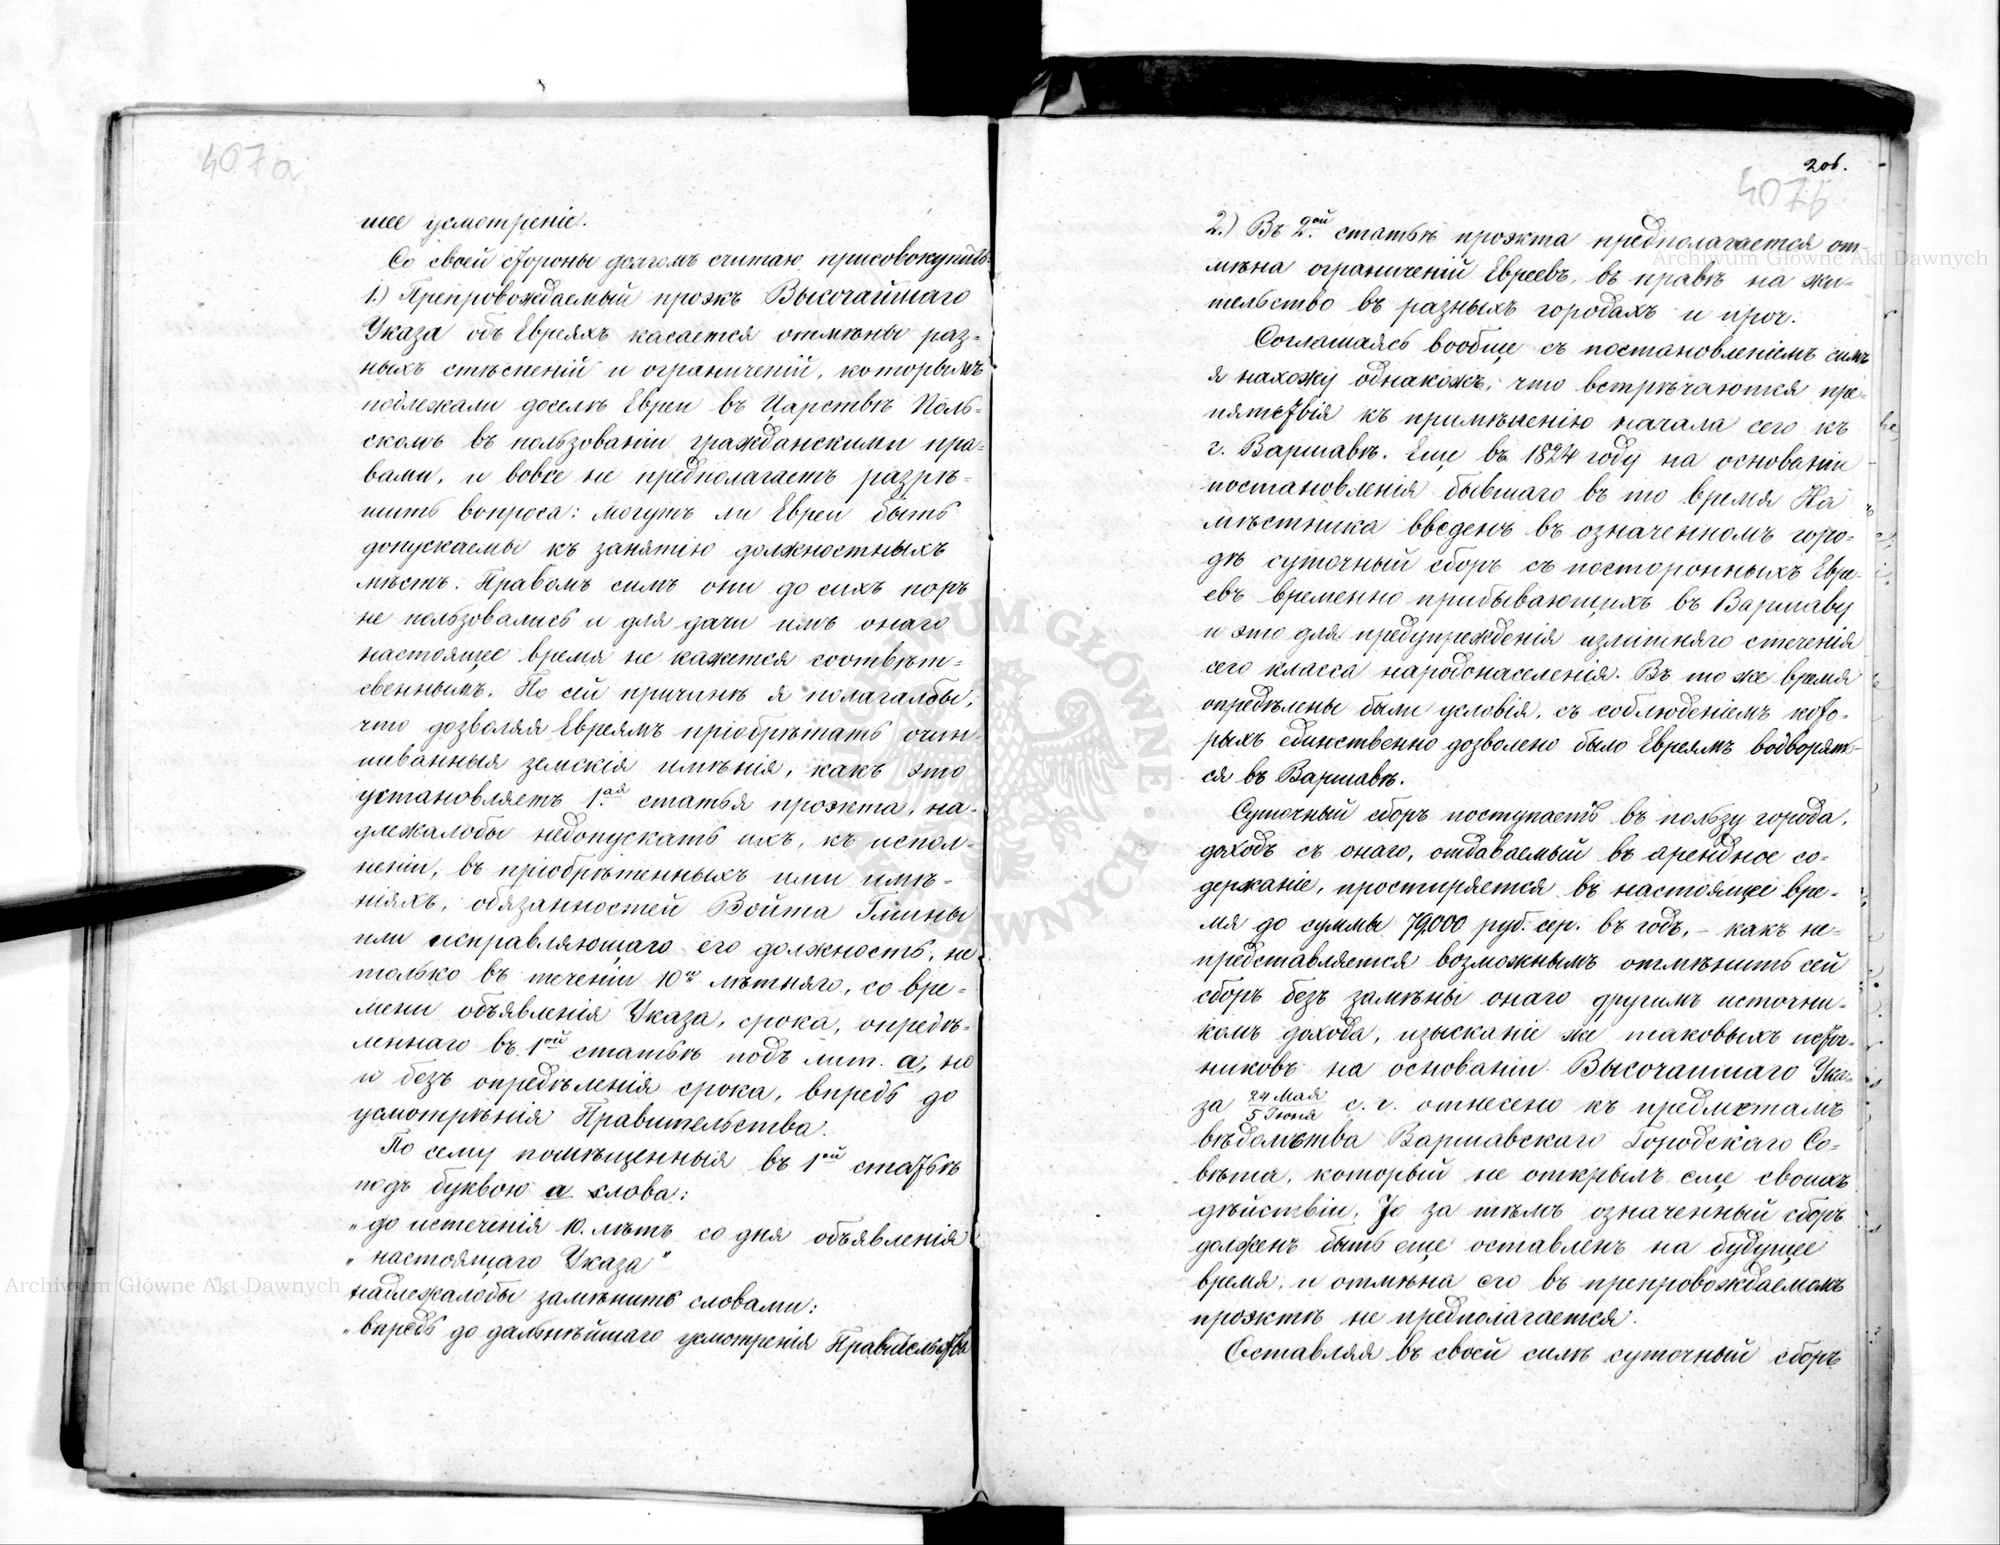 407a
шее усмотреніе.
Со своей стороны долгомъ считаю присовокупить:
1.) Препровождаемый проэкъ Высочайшаго
Указа объ Евреяхъ касается отмѣны раз-
ныхъ стѣсненій и ограниченій, которымъ
подлежали доселѣ Евреи въ Царствѣ Поль-
скомъ въ пользованіи гражданскими пра-
вами, и вовсе не предполагаетъ разрѣ-
шить вопроса: могутъ ли Евреи быть
допускаемы къ занятію должностныхъ
мѣстъ. Правомъ симъ они до сихъ поръ
не пользовались и для дачи имъ онаго
настоящее время не кажется соотвѣт-
свеннымъ. По сей причинѣ я полагалъбы,
что дозволяя Евреямъ пріобрѣтать очин-
шеванныя земскія имѣнія, какъ это
установляетъ 1.ая статья проэкта, на-
длежалобы недопускать ихъ, къ испол-
неніи, въ пріобрѣтенныхъ ими имѣ-
ніяхъ, обязанностей Войта Гмины
или исправляющаго его должность, не
только въ теченіи 10ти лѣтняго, со вре-
мени объявленія Указа, срока, опредѣ-
леннаго въ 1ой статьѣ подъ лит. а, но
и безъ опредѣленія срока, впредь до
усмотрѣнія Правительства.
По сему помѣщенныя въ 1ой статьѣ
подъ буквою а слова:
„до истеченія 10. лѣтъ со дня объявленія
„настоящаго Указа"
надлежалобы замѣнить словами:
„впредь до дальнѣйшаго усмотренія Правительства
206.
407b
2.) Въ 2.ой статьѣ проэкта предполагается от-
мѣна ограниченій Евреевъ, въ правѣ на жи-
тельство въ разныхъ городахъ и проч.
Соглашаясь вообще съ постановленіемъ симъ
я нахожу однакожъ, что встрѣчаются пре-
пятствія къ примѣненію начала сего къ
г. Варшавѣ. Еще въ 1824 году на основаніи
постановленія бывшаго въ то время На
мѣстника введенъ въ означенномъ горо-
дѣ суточный сборъ съ постороннихъ Евре-
евъ временно прибывающихъ въ Варшаву
и это для предупрежденія излишняго стеченія
сего класса народонаселенія. Въ то же время
опредѣлены были условія, съ соблюденіемъ кото-
рыхъ единственно дозволено было Евреямъ водворять-
ся въ Варшавѣ.
Суточный сборъ поступаетъ въ пользу города,
доходъ съ онаго, отдаваемый въ арендное со-
держаніе, простиряется въ настоящее вре-
мя до суммы 79,000 руб. сер. въ годъ, – какъ не-
представляется возможнымъ отмѣнить сей
сборъ безъ замѣны онаго другимъ источни-
комъ дохода, изысканіе же таковыхъ источ-
никовъ на основаніи Высочаишаго Ука-
за 24 Мая/5 Іюня с. г. отнесено къ предметамъ
вѣдомства Варшавскаго Городскаго Со-
вѣта, который не открылъ еще своихъ
дѣйствіи, То за тѣмъ означенный сборъ
долженъ быть еще оставленъ на будущее
время, и отмѣна его въ препровождаемомъ
проэктѣ не предполагается.
Оставляя въ своей силѣ суточный сборъ
Archiwum Główne Akt Dawnych
Archiwum Główne Akt Dawnych